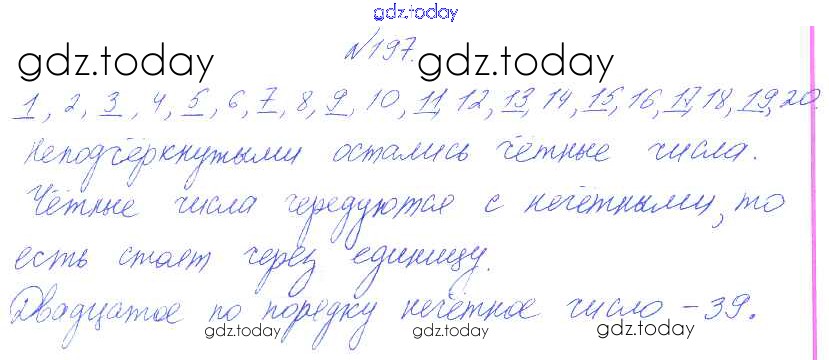 gdz.today
№197.
gdz.today gdz.today
1, 2, 3, 4, 5, 6, 7, 8, 9, 10, 11, 12, 13, 14, 15, 16, 17, 18, 19, 20.
Неподчёркнутыми остались чётные числа.
Чётные числа чередуются с нечётными, то
есть стоят через единицу.
Двадцатое по порядку нечётное число – 39.
gdz.today gdz.today gdz.today